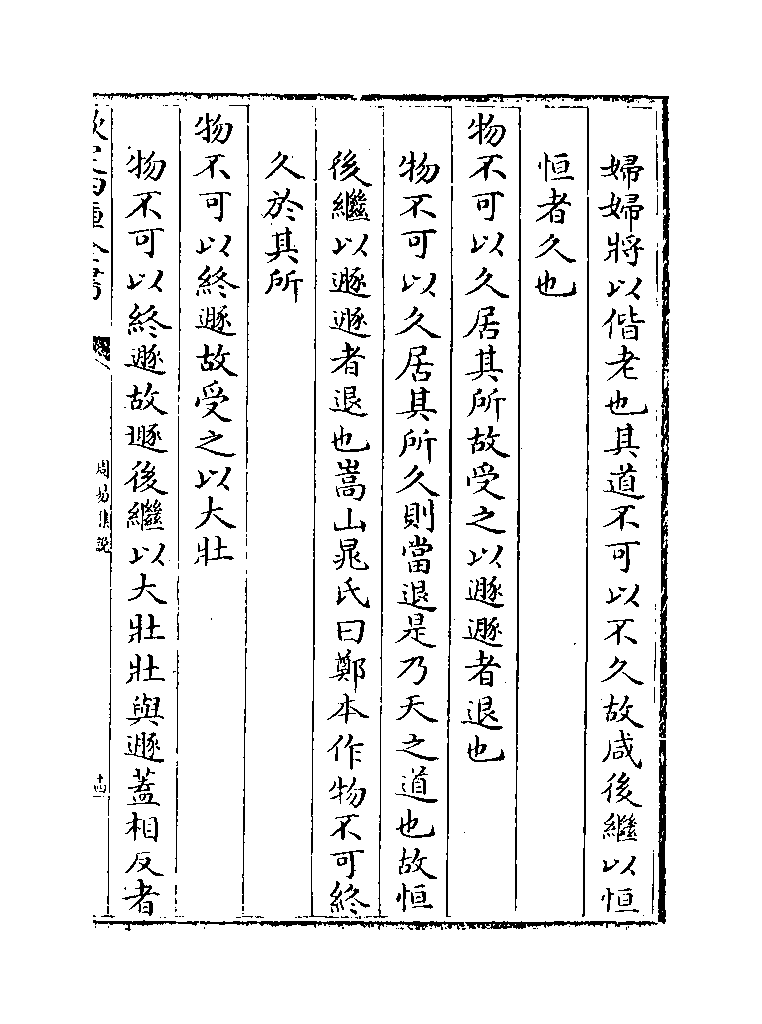 婦婦將以偕老也其道不可以不久故咸後繼以恒
恒者久也
物不可以久居其所故受之以遯遯者退也
物不可以久居其所久則當退是乃天之道也故恒
後繼以遯遯者退也嵩山晁氏曰鄭本作物不可終
久於其所
物不可以終遯故受之以大壯
物不可以終遯故遯後繼以大壯壯與遯蓋相反者
欽定四庫全書
周易集說
十四